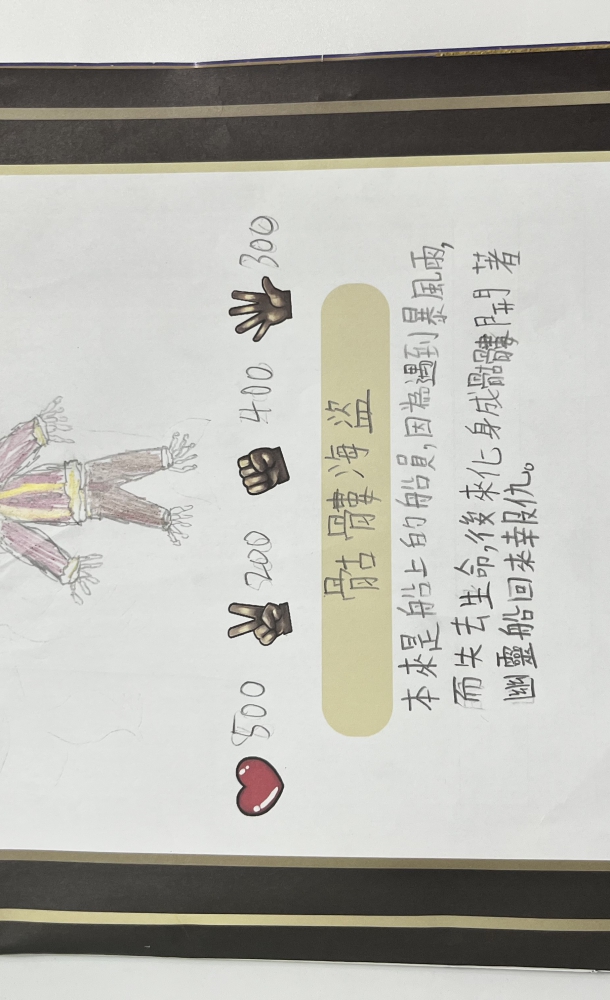 500 200 400 300
骷髏海盜
本來是船上的船員,因為遇到暴風雨,
而失去生命,後來化身成骷髏開著
幽靈船回來報仇。